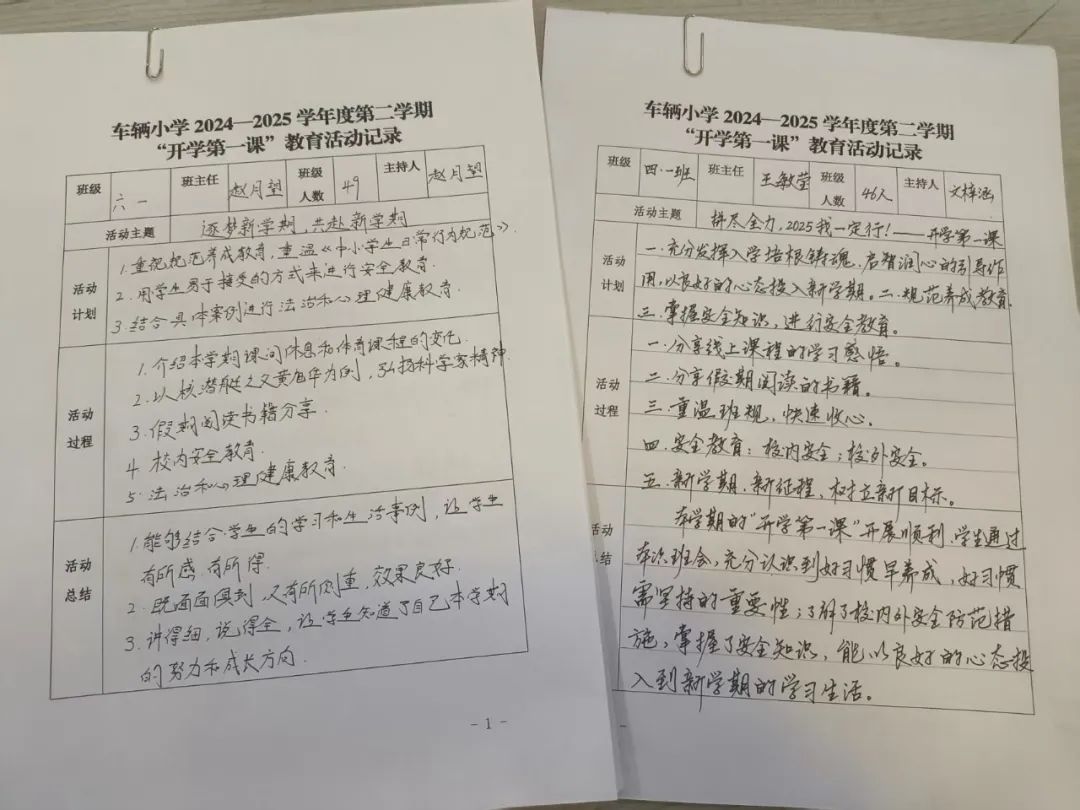 车辆小学 2024—2025 学年度第二学期
“开学第一课”教育活动记录
班级 六一 班主任 赵月望 班级人数 49 主持人 赵月望
活动主题 逐梦新学期,共赴新学期
活动计划
1.重视规范养成教育,重温《中小学生日常行为规范》。
2.用学生易于接受的方式来进行安全教育.
3.结合具体案例进行法治和心理健康教育.
活动过程
1.介绍本学期课间休息和体育课程的变化.
2.以核潜艇之父黄旭华为例,弘扬科学家精神.
3.假期阅读书籍分享.
4.校内安全教育.
5.法治和心理健康教育.
活动总结
1.能够结合学生的学习和生活事例,让学生
有所感.有所得.
2.既面面俱到,又有所侧重,效果良好.
3.讲得细,说得全,让学生知道了自己本学期
的努力和成长方向.
- 1 -
车辆小学 2024—2025 学年度第二学期
“开学第一课”教育活动记录
班级 四·一班 班主任 王敏莹 班级人数 46人 主持人 文梓涵
活动主题 拼尽全力,2025我一定行!——开学第一课
活动计划
一.充分发挥入学培根铸魂、启智润心的引导作
用,以良好的心态投入新学期。二.规范养成教育.
三.掌握安全知识,进行安全教育。
活动过程
一.分享线上课程的学习感悟。
二.分享假期阅读的书籍。
三.重温班规,快速收心。
四.安全教育:校内安全;校外安全。
五.新学期.新征程,树立新目标。
活动总结
本学期的“开学第一课”开展顺利.学生通过
本次班会,充分认识到好习惯早养成,好习惯
需坚持的重要性;了解了校内外安全防范措
施,掌握了安全知识,能以良好的心态投
入到新学期的学习生活。